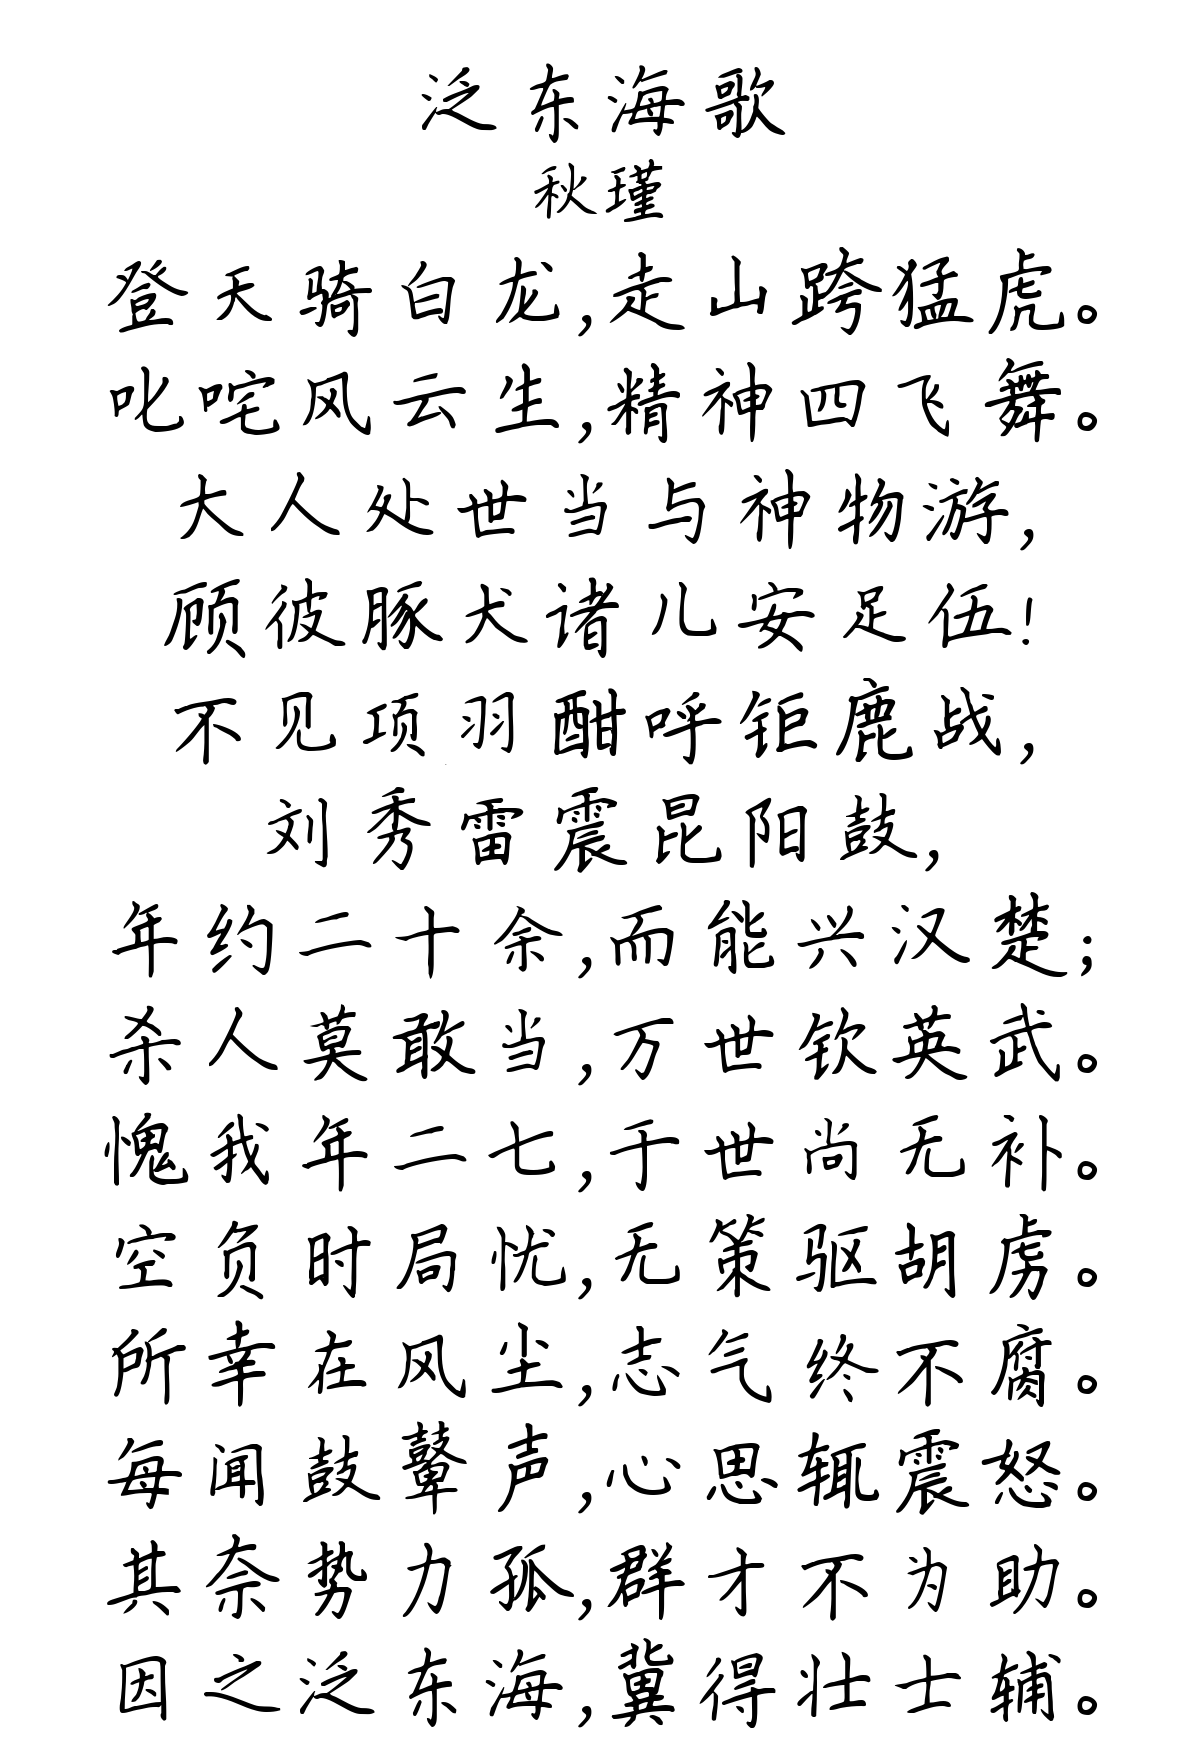 泛东海歌
秋瑾
登天骑白龙,走山跨猛虎。
叱咤风云生,精神四飞舞。
大人处世当与神物游,
顾彼豚犬诸儿安足伍!
不见项羽酣呼钜鹿战,
刘秀雷震昆阳鼓,
年约二十余,而能兴汉楚;
杀人莫敢当,万世钦英武。
愧我年二七,于世尚无补。
空负时局忧,无策驱胡虏。
所幸在风尘,志气终不腐。
每闻鼓鼙声,心思辄震怒。
其奈势力孤,群才不为助。
因之泛东海,冀得壮士辅。